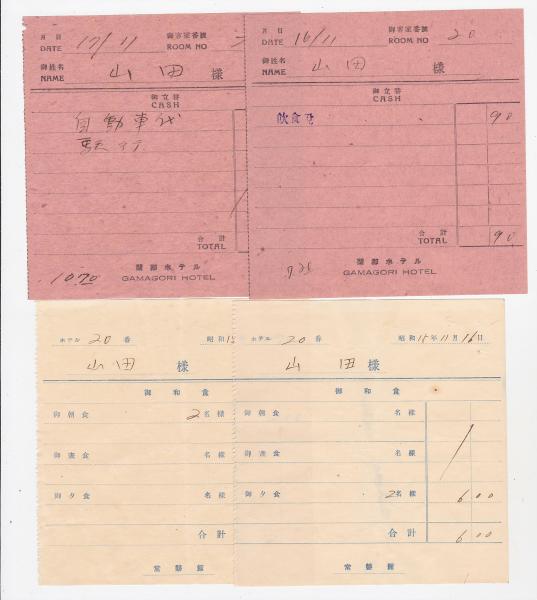 月日 DATE 17/11 御客室番號 ROOM NO
御姓名 NAME 山田 様
御立替
CASH
自動車代
合計 TOTAL
蒲郡ホテル
GAMAGORI HOTEL
月日 DATE 16/11 御客室番號 ROOM NO 20
御姓名 NAME 山田 様
御立替
CASH
飲食 90
合計 TOTAL 90
蒲郡ホテル
GAMAGORI HOTEL
ホテル 20 番 昭和15
山田 様
御和食
御朝食 2名様
御晝食 名様
御夕食 名様
合計
常磐館
ホテル 20 番 昭和15年11月16日
山田 様
御和食
御朝食 名様
御晝食 名様
御夕食 2名様 6 00
合計 6 00
常磐館